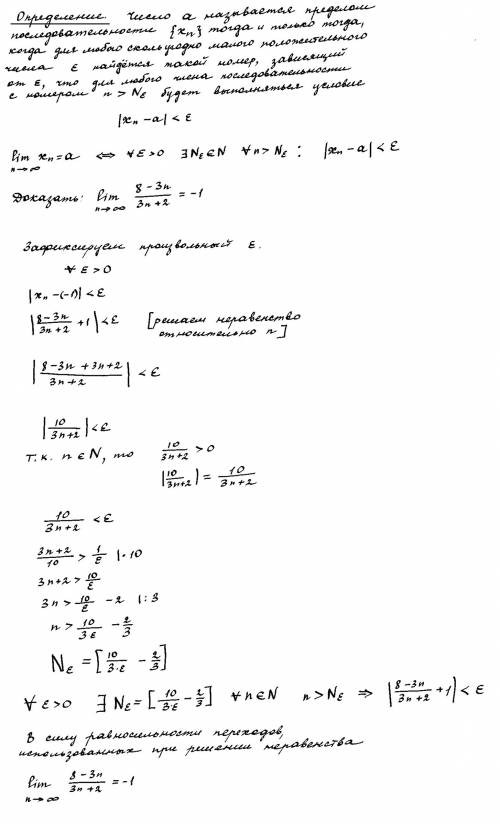 Определение. Число a называется пределом
последовательности {xₙ} тогда и только тогда,
когда для любого сколь угодно малого положительного
числа ε найдётся такой номер, зависящий
от ε, что для любого члена последовательности
с номером n > Nε будет выполняться условие
|xₙ - a| < ε
lim n→∞ xₙ = a ⇔ ∀ε>0 ∃Nε∈N ∀n>Nε : |xₙ-a|<ε
Доказать: lim n→∞ (8-3n)/(3n+2) = -1
Зафиксируем произвольный ε.
∀ε>0
|xₙ-(-1)|<ε
|(8-3n)/(3n+2) + 1| < ε [решаем неравенство
относительно n]
|(8-3n+3n+2)/(3n+2)| < ε
|10/(3n+2)| < ε
т.к. n∈N, то 10/(3n+2) > 0
|10/(3n+2)| = 10/(3n+2)
10/(3n+2) < ε
(3n+2)/10 > 1/ε |·10
3n+2 > 10/ε
3n > 10/ε - 2 |:3
n > 10/(3ε) - 2/3
Nε = [10/(3·ε) - 2/3]
∀ε>0 ∃Nε = [10/(3·ε) - 2/3] ∀n∈N n>Nε ⇒ |(8-3n)/(3n+2) + 1| < ε
В силу равносильности переходов,
использованных при решении неравенства
lim n→∞ (8-3n)/(3n+2) = -1